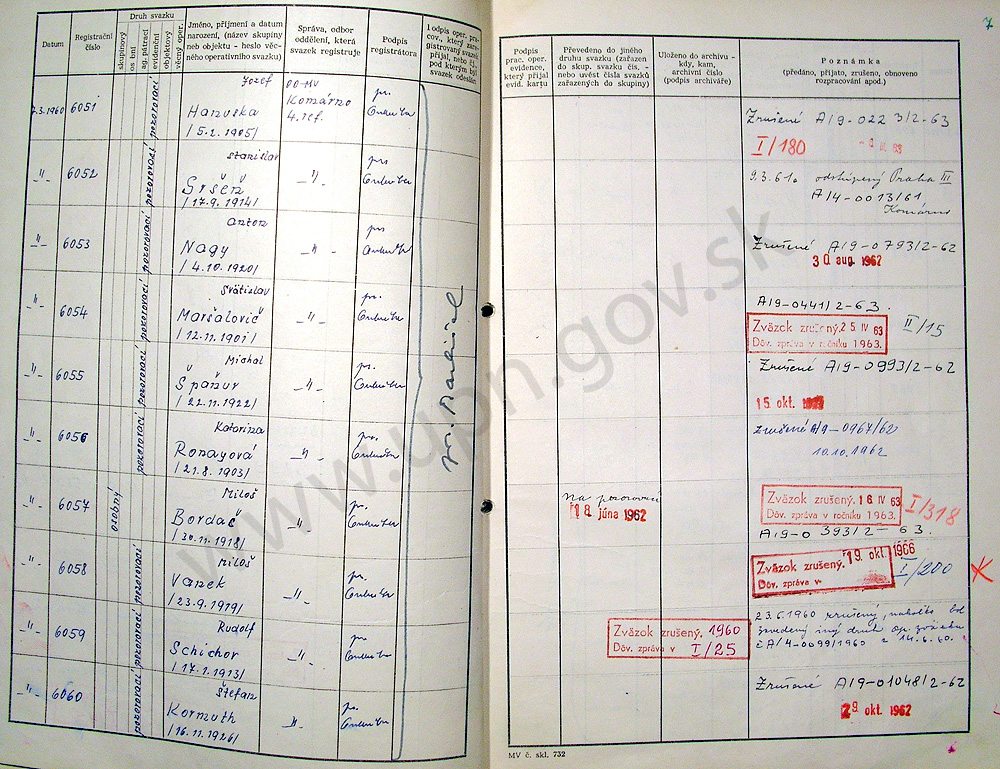 Datum
Registrační
číslo
Druh svazku
skupinový
osobní
ag. pátrací
evidenční
objektový
věcný oper.
Jméno, příjmení a datum
narození, (název skupiny
neb objektu - heslo věc-
ného operativního svazku)
Správa, odbor
oddělení, která
svazek registruje
Podpis
registrátora
I odpis oper. pra-
cov., který zare-
gistrovaný svazek
přijal, nebo čj.
pod kterým byl
svazek odeslán
2.3.1960 6051 pozorovací Jozef
Hanuska
/5.2.1905/
OO-MV
Komárno
4. ref.
-"- 6052 pozorovací Stanislav
Gršeň
/17.9.1914/
-"-
-"- 6053 pozorovací Anton
Nagy
/4.10.1920/
-"-
-"- 6054 pozorovací Svätislav
Maršalovič
/12.11.1901/
-"-
-"- 6055 pozorovací Michal
Špaňur
/22.11.1922/
-"-
-"- 6056 pozorovací Katarina
Ronayová
/21.8.1903/
-"-
-"- 6057 osobný Miloš
Bordač
/30.11.1918/
-"-
-"- 6058 pozorovací Miloš
Vanek
/23.9.1919/
-"-
-"- 6059 pozorovací Rudolf
Schichor
/17.1.1913/
-"-
-"- 6060 pozorovací Štefan
Kormuth
/16.11.1926/
-"-
7
Podpis
prac. oper.
evidence,
který přijal
evid. kartu
Převedeno do jiného
druhu svazku (zařazen
do skup. svazku čís. -
nebo uvést čísla svazků
zařazených do skupiny)
Uloženo do archivu -
kdy, kam,
archivní číslo
(podpis archiváře)
Poznámka
(předáno, přijato, zrušeno, obnoveno
rozpracování apod.)
Zrušené A/9-0223/2-63
I/180
9.3.61. odstúpený Praha III
A/4-0013/61
Komárno
Zrušené A/9-0793/2-62
30 aug. 1962
A/9-0441/2-63.
Zväzok zrušený. 25 IV 63
Dôv. zpráva v ročníku 1963.
II/15
Zrušené A/9-0993/2-62
15. okt.
zrušené A/9-0967/62
10.10.1962
Na pozorovací
18 júna 1962
Zväzok zrušený. 16 IV 63
Dôv. zpráva v ročníku 1963.
I/318
A/9-0393/2-63.
Zväzok zrušený. 19. okt. 1966
Dôv. zpráva v
I/200
Zväzok zrušený. 1960
Dôv. zpráva v I/25
23.6.1960 zrušený, nakoľko bol
zavedený iný druh op. zväzku
čA/4-0099/1960 z 14.6.60.
Zrušené A/9-01048/2-62
29 okt. 1962
MV č. skl. 732
www.upn.gov.sk